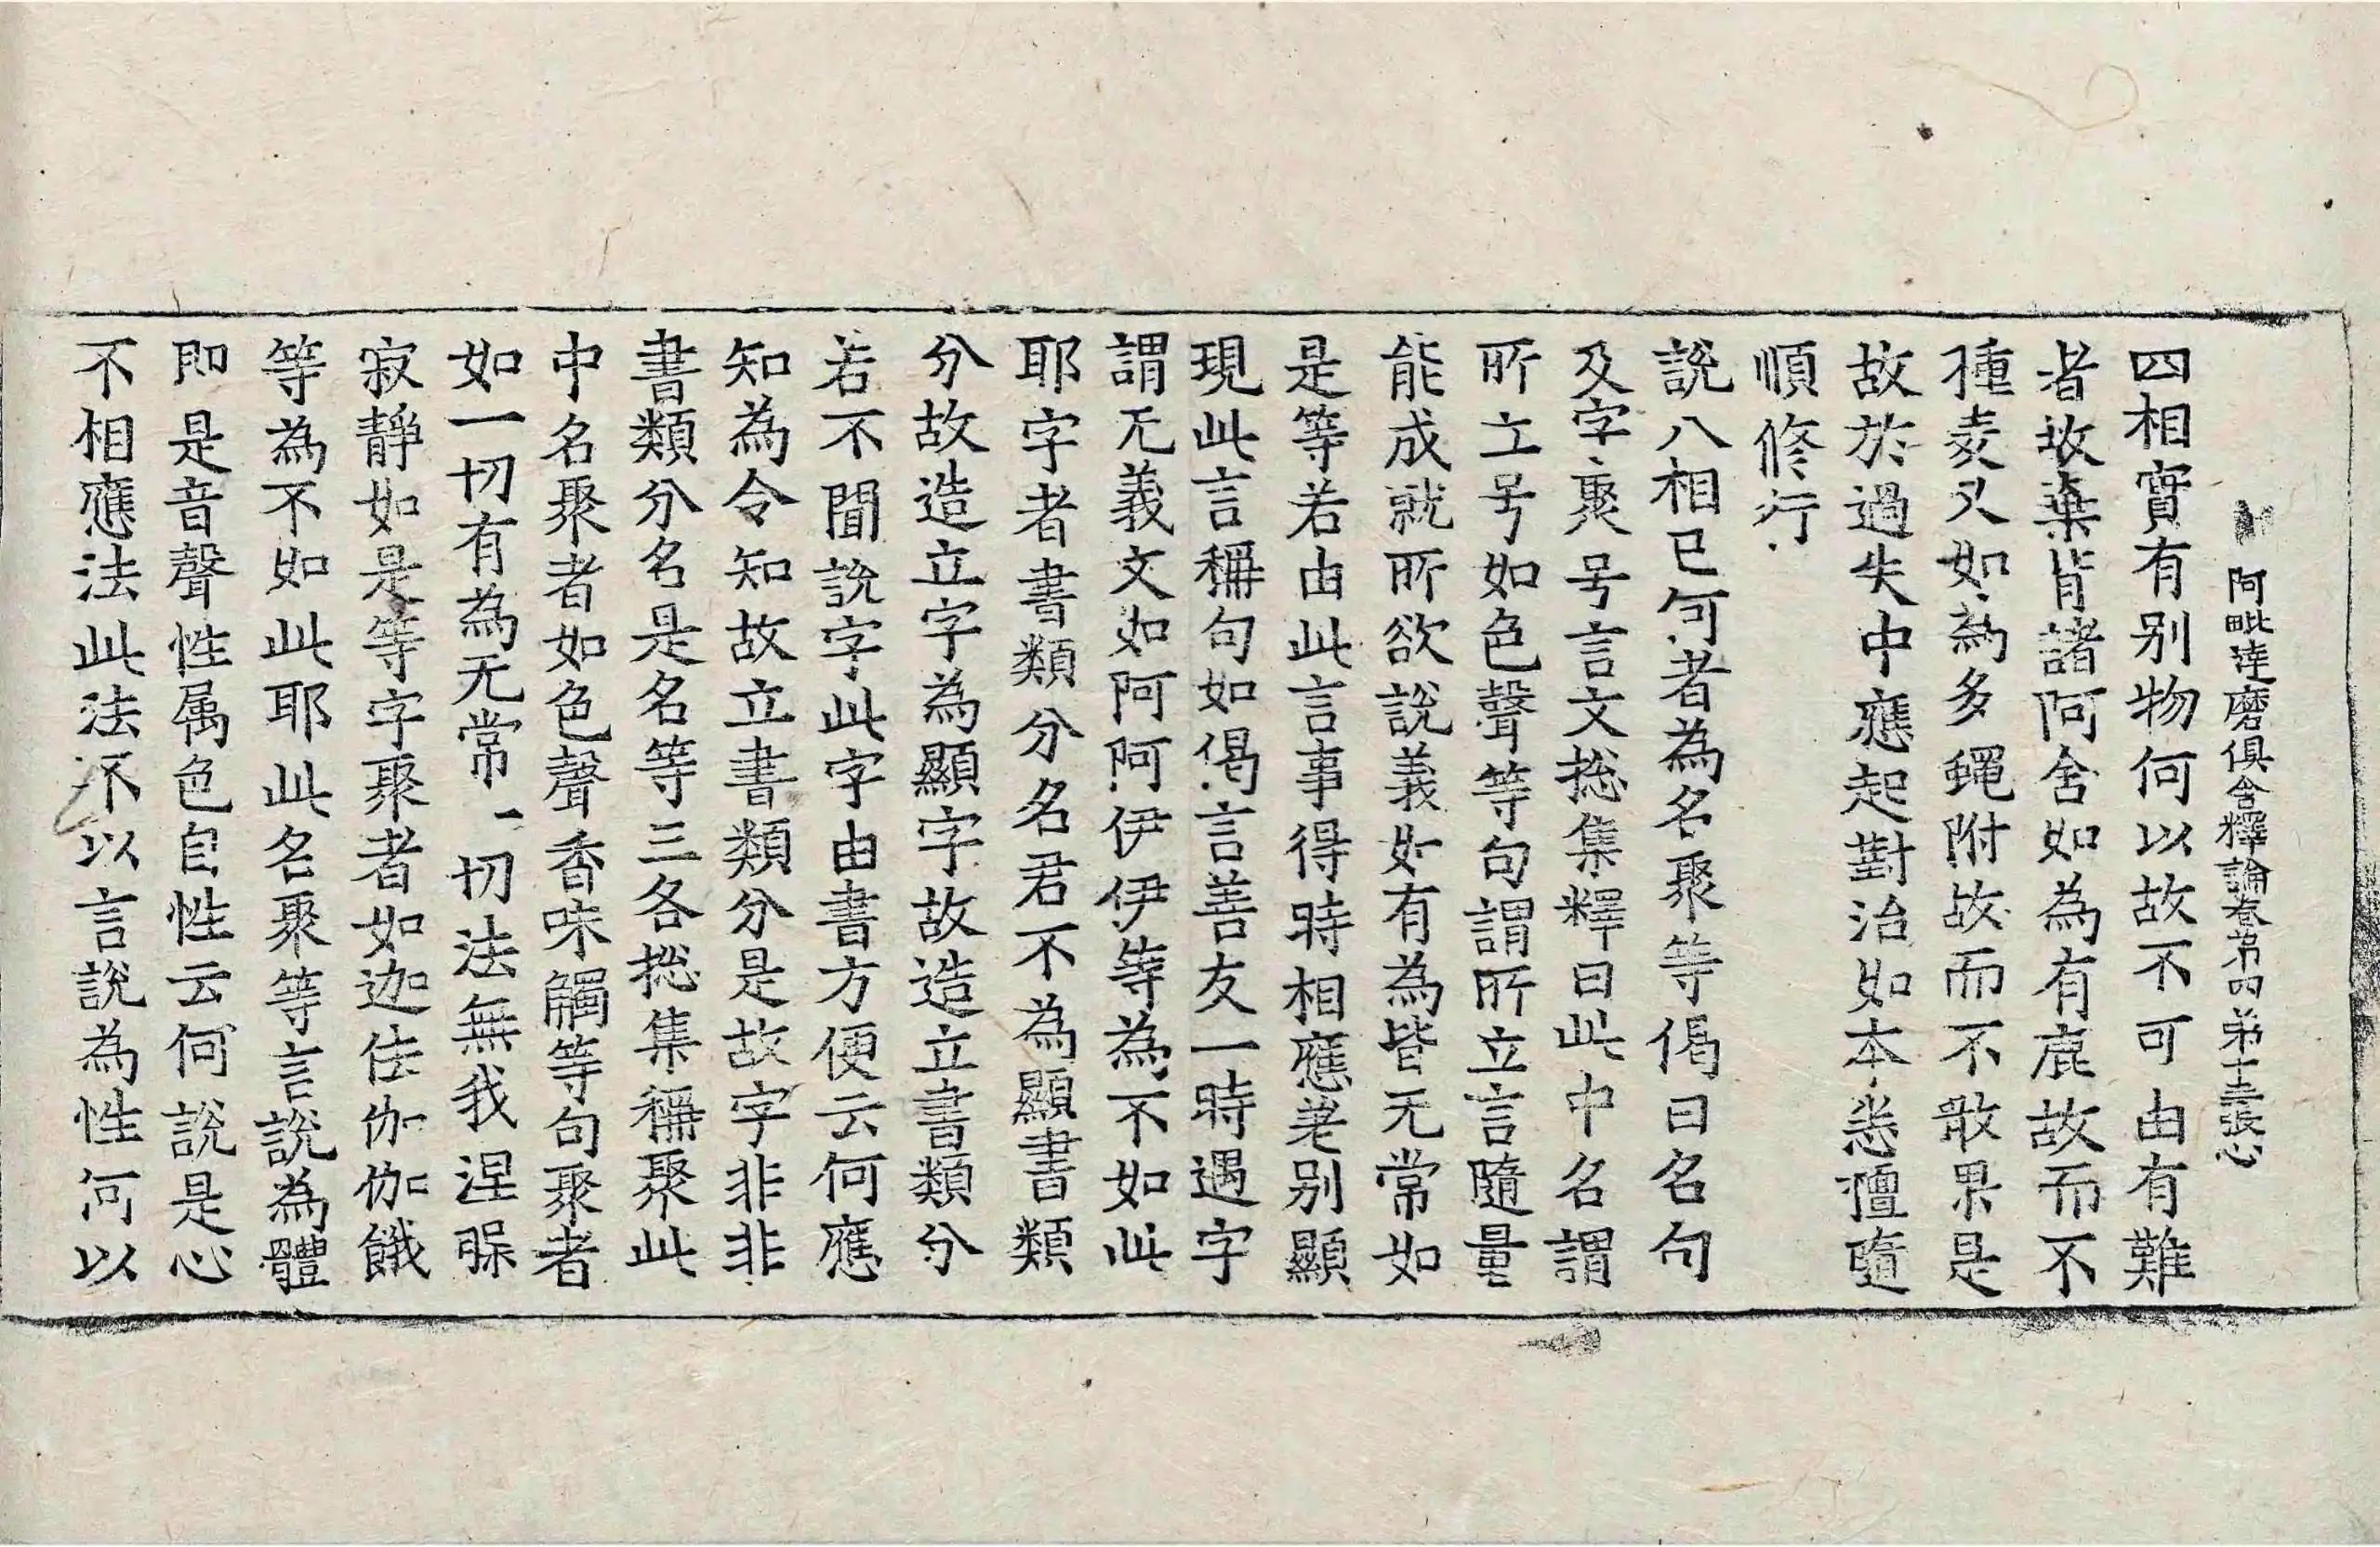 阿毗達磨俱舍釋論卷苐四 苐十三張心
四相實有別物何以故不可由有難
者故棄背諸阿含如為有鹿故而不
種麦又如為多蠅附故而不敢果是
故於過失中應起對治如本悉擅隨
順修行
說八相已何者為名聚等偈曰名句
及字聚号言文捴集釋曰此中名謂
所立号如色聲等句謂所立言隨量
能成就所欲說義如有為皆无常如
是等若由此言事得時相應差別顯
現此言稱句如偈言善友一時遇字
謂无義文如阿阿伊伊等為不如此
耶字者書類分名君不為顯書類
分故造立字為顯字故造立書類分
若不聞說字此字由書方便云何應
知為令知故立書類分是故字非非
書類分名是名等三各捴集稱聚此
中名聚者如色聲香味觸等句聚者
如一切有為无常一切法無我涅槃
寂靜如是等字聚者如迦佉伽伽餓
等為不如此耶此名聚等言說為體
即是音聲性属色自性云何說是心
不相應法此法不以言說為性何以